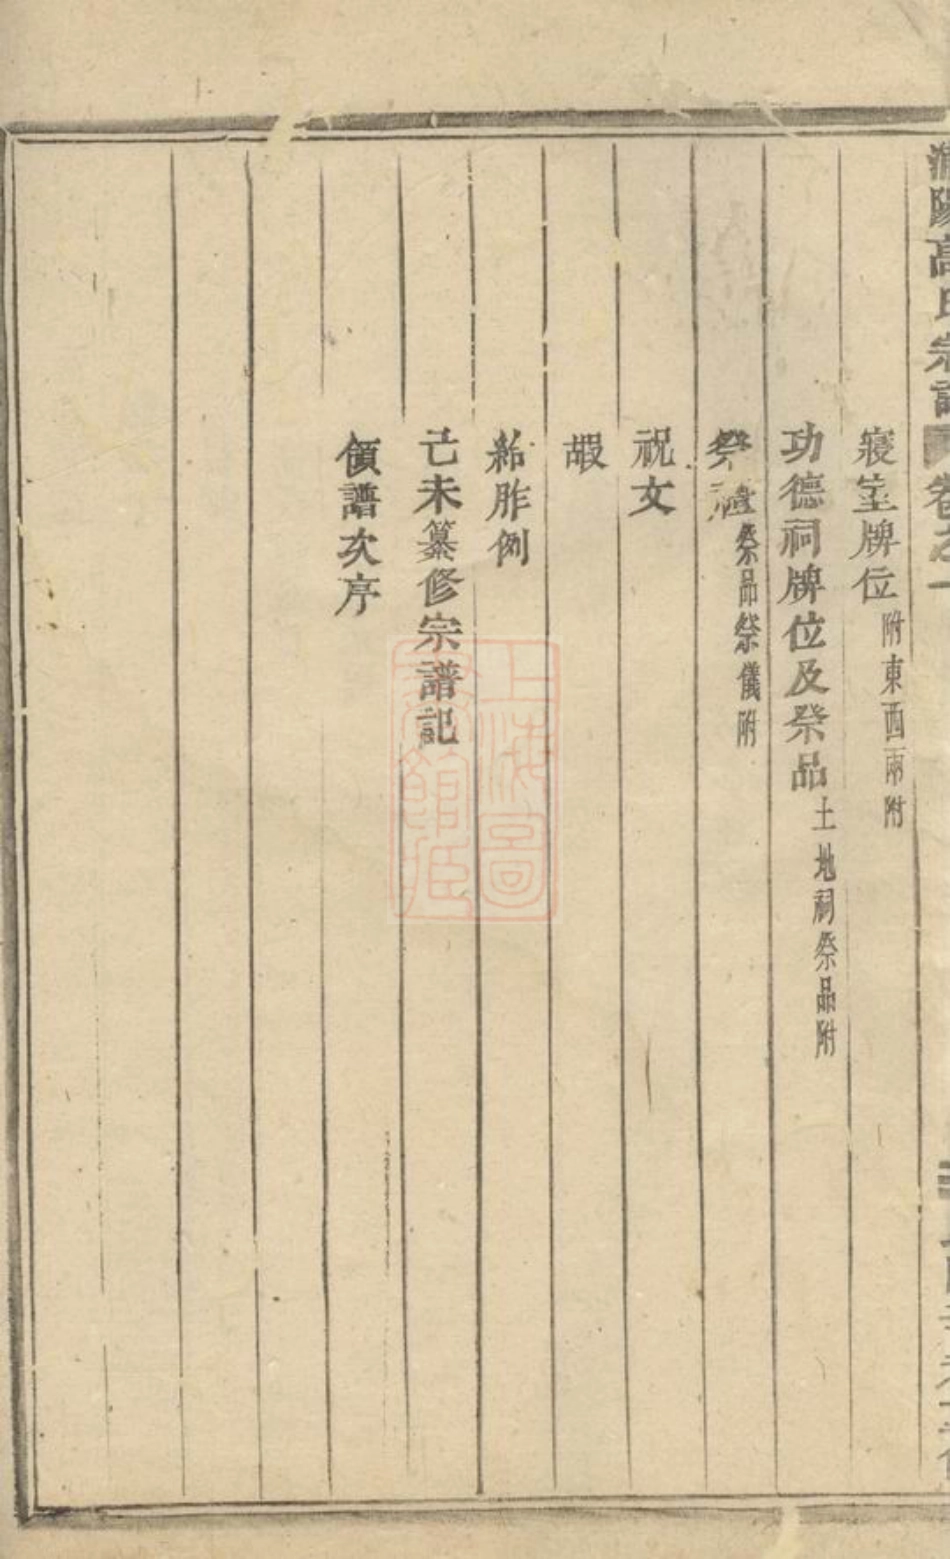 高氏宗譜 卷之一
寢室牌位附東西兩附
功德祠牌位及祭品土地祠祭品附
祭禮祭品祭儀附
祝文
嘏
胙例
己未纂修宗譜記
領譜次序
上海圖書館藏